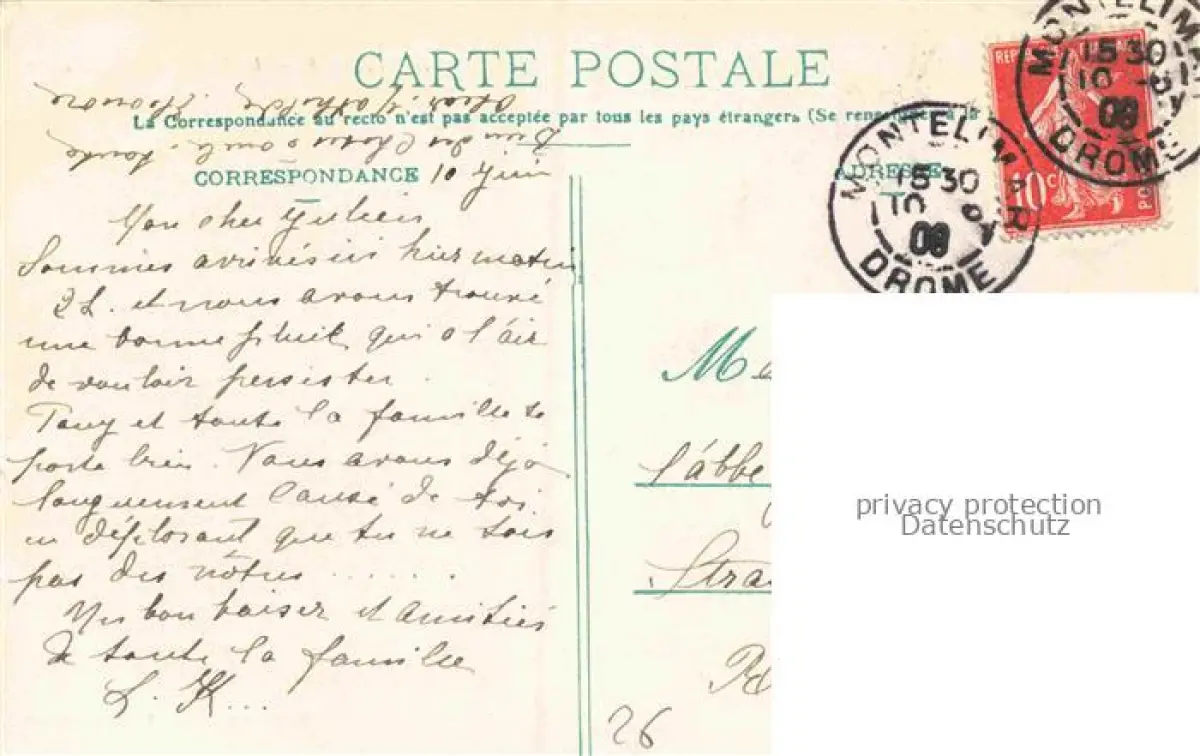 CARTE POSTALE
La Correspondance au recto n'est pas acceptée par tous les pays étrangers (Se renseigner à la
CORRESPONDANCE
ADRESSE
10 Juin
Mon cher Julien
Sommes arrivés ici hier matin
2 h. et nous avons trouvé
une bonne pluie qui a l'air
de vouloir persister.
Tony et toute la famille se
porte bien. Nous avons déjà
longuement causé de toi
en déplorant que tu ne sois
pas des nôtres ......
Mes bon baiser et amitiés
de toute la famille
L. K...
Bien des choses à toute
MONTELIMAR
15 30
10
08
DROME
MONTELIMAR
15 30
10
08
DROME
REP
10 c
PO
M
l'abbé
Stra
26
privacy protection
Datenschutz